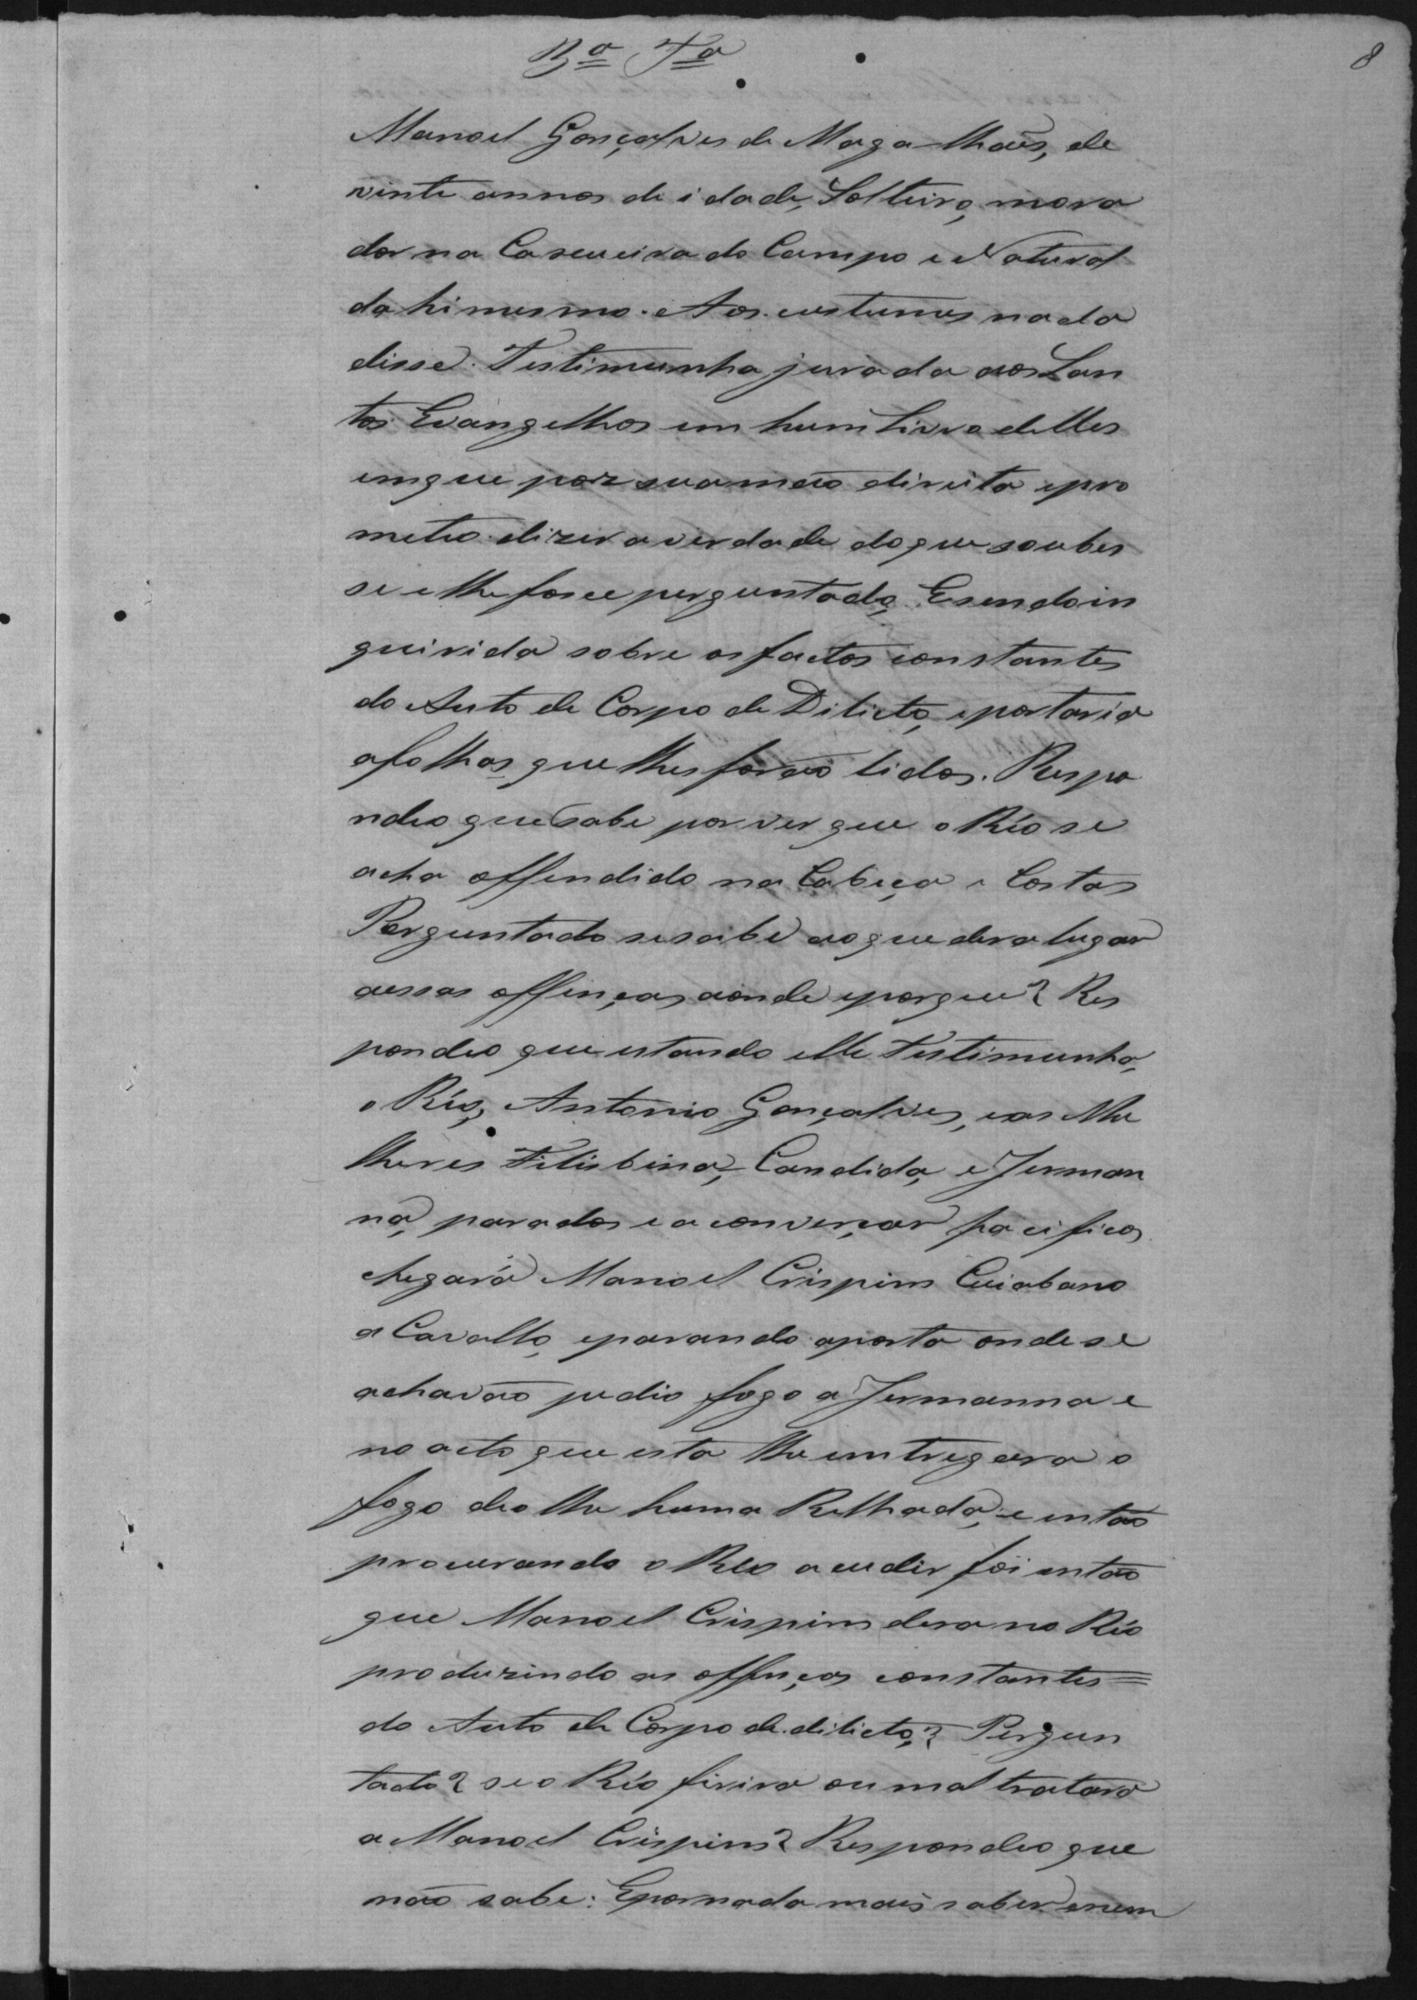 3ª Tª
8
Manoel Gonçalves de Maga lhaẽs, de
vinte annos de idade, Solteiro, mora
dor na Caxueira do Campo e Natural
da hi mesmo. Aos custumes nada
disse. Testimunha jurada aos San
tos Evangelhos em hum Livro delles
emque poz sua mão direita epro
meteo dizer a verdade do que soubes
se e lhe fosse perguntado. E sendo in
quirida sobre os factos constantes
do Auto de Corpo de Dilicto, eportaria
afolhas que lhes forão lidos. Respo
ndeo que sabe por ver que o Réo se
acha offendido na Cabeça e Costas
Perguntado se sabe aoque dera lugar
aessas offenças aonde eporque? Res
pondeo que estando elle Testimunha,
o Réo, Antonio Gonçalves, eas Mu
lheres Filisbina, Candida, e Jerman
na, parados e a converçar pacificos
chegará Manoel Crispim Cuiabano
a Cavallo, eparando aporta onde se
achavão pedio fogo a Jermanna e
no acto que esta lhe entregara o
fogo deo lhe huma Relhada, e então
procurando o Réo acudir foi então
que Manoel Crispim dera no Réo
produzindo as offenças constantes=
do Auto de Corpo de dilicto? Pergun
tado? se o Réo firira ou mal tratara
a Manoel Crispim? Respondeo que
não sabe: Epornada mais saber enem